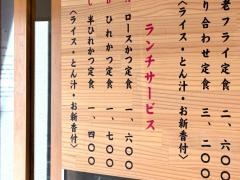 老フライ定食 二、
り合わせ定食 三、二〇〇
〈ライス・とん汁・お新香付〉
ランチサービス
ロースかつ定食 一、六〇〇
ひれかつ定食 一、七〇〇
半ひれかつ定食 一、四〇〇
〈ライス・とん汁・お新香付〉